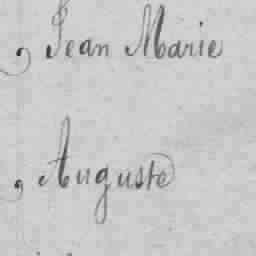 , Jean Marie
, Auguste